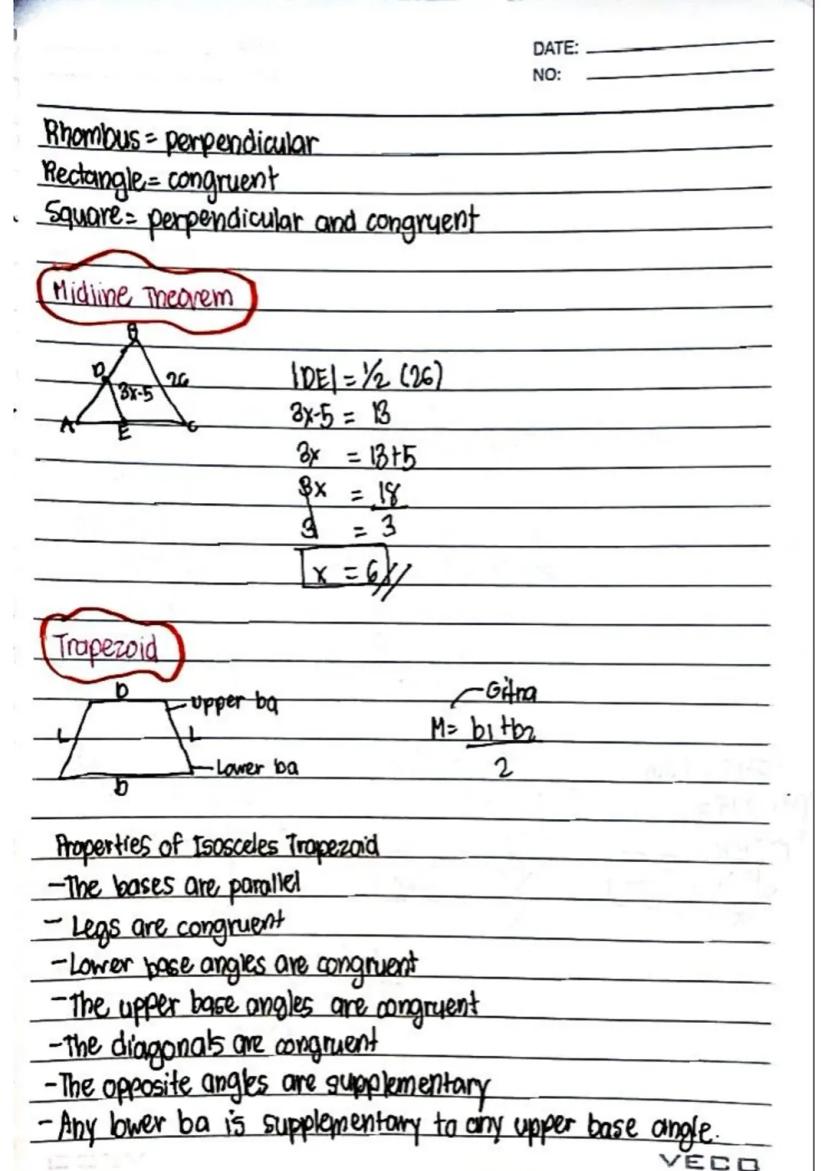 DATE:
NO:
Rhombus = perpendicular
Rectangle = congruent
Square = perpendicular and congruent
Midline Theorem
B
D
26
3x-5
A
E
C
|DE| = 1/2 (26)
3x-5 = 13
3x = 13+5
3x = 18
3 = 3
x = 6//
Trapezoid
b
upper ba
L
L
Lower ba
b
Gitna
M = b1+b2
2
Properties of Isosceles Trapezoid
-The bases are parallel
- Legs are congruent
-Lower base angles are congruent
-The upper base angles are congruent
-The diagonals are congruent
-The opposite angles are supplementary
-Any lower ba is supplementary to any upper base angle.
VECO